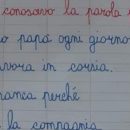 conoscevo la parola
papà ogni giorno
in corsia.
perché
la compagnia